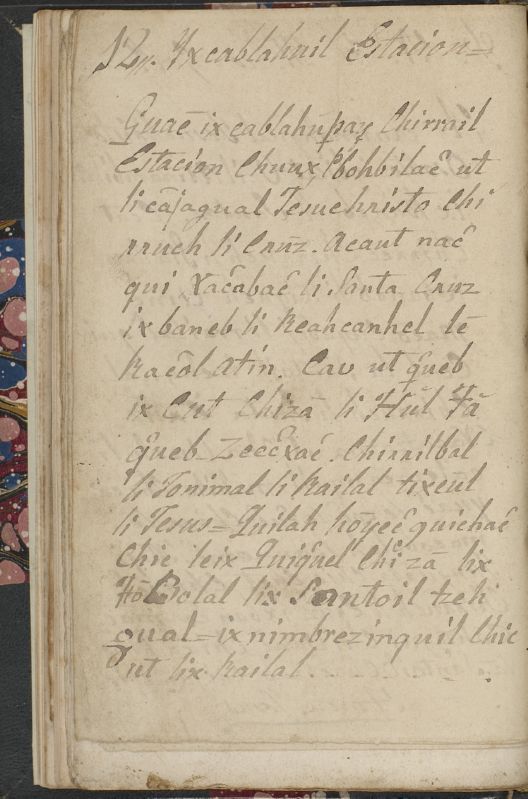 12,, Yxcablahuil Estacion=
Guaē ixcablahupaȥ Chirrail
Estacion Chuux bohbilac ut
li cājagual Jesuchristo Chi
rruch li Crūz. Acaut nac
qui Xacabac li Santa Cruz
ixbaneb li Reahcanhel lē
Racōl Atin. Cav ut queb
ix Cut Chizā li Hūl Yā
queb Zeecxac. Chirrilbal
li Tonimal li Railal tixeūl
li Jesus= Quilah hōyec quichac
Chic leix Quiquel Chizā lix
Lolal lix Santoil tzeh
gual=ixnimbrezinquil Chic
ut lix Railal.